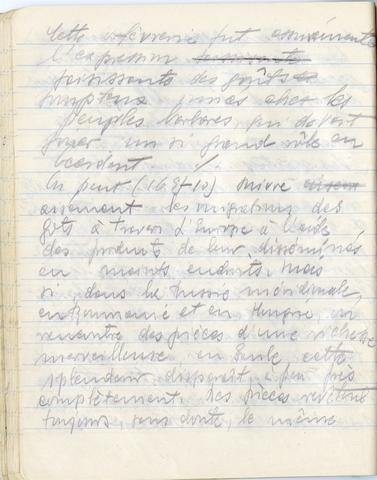 Cette orfèvrerie fut assurément
l'expression
puissante des goûts
somptueux innés chez les
peuples barbares, qui devaient
jouer un si grand rôle en
Occident. /.
On peut (168f+10) suivre
aisément les migrations des
Gots à travers l'Europe à l'aide
des produits de leur, disséminés
en maints endroits, mais
si, dans la Russie méridionale,
en Roumanie et en Hongrie, on
rencontre des pièces d'une richesse
merveilleuse, en Gaule, cette
splendeur disparaît, à peu près
complètement. Les pièces
toujours, sans doute, le même